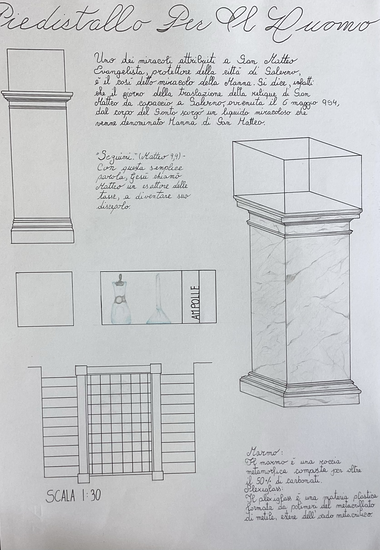 Piedistallo Per Il Duomo
Uno dei miracoli attribuiti a San Matteo
Evangelista, protettore della città di Salerno,
è il così detto miracolo della Manna. Si dice, infatti
che il giorno della traslazione delle reliquie di San
Matteo da Capaccio a Salerno, avvenuta il 6 maggio 954,
dal corpo del Santo sorgò un liquido miracoloso che
venne denominato Manna di San Matteo.
"Seguimi." (Matteo 9,9) -
Con questa semplice
parola, Gesù chiamò
Matteo un esattore delle
tasse, a diventare suo
discepolo.
AMPOLLE
SCALA 1:30
Marmo:
Il marmo è una roccia
metamorfica composta per oltre
il 50% di carbonati.
Plexiglass:
Il plexiglass è una materia plastica
formata da polimeri del metacrilato
di metile, estere dell'acido metacrilico.